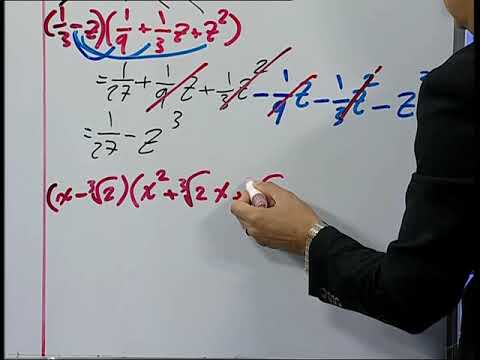 (1/3 - z)(1/9 + 1/3 z + z²)
= 1/27 + 1/9 z + 1/3 z² - 1/9 z - 1/3 z² - z³
= 1/27 - z³
(x - ∛2)(x² + ∛2 x +